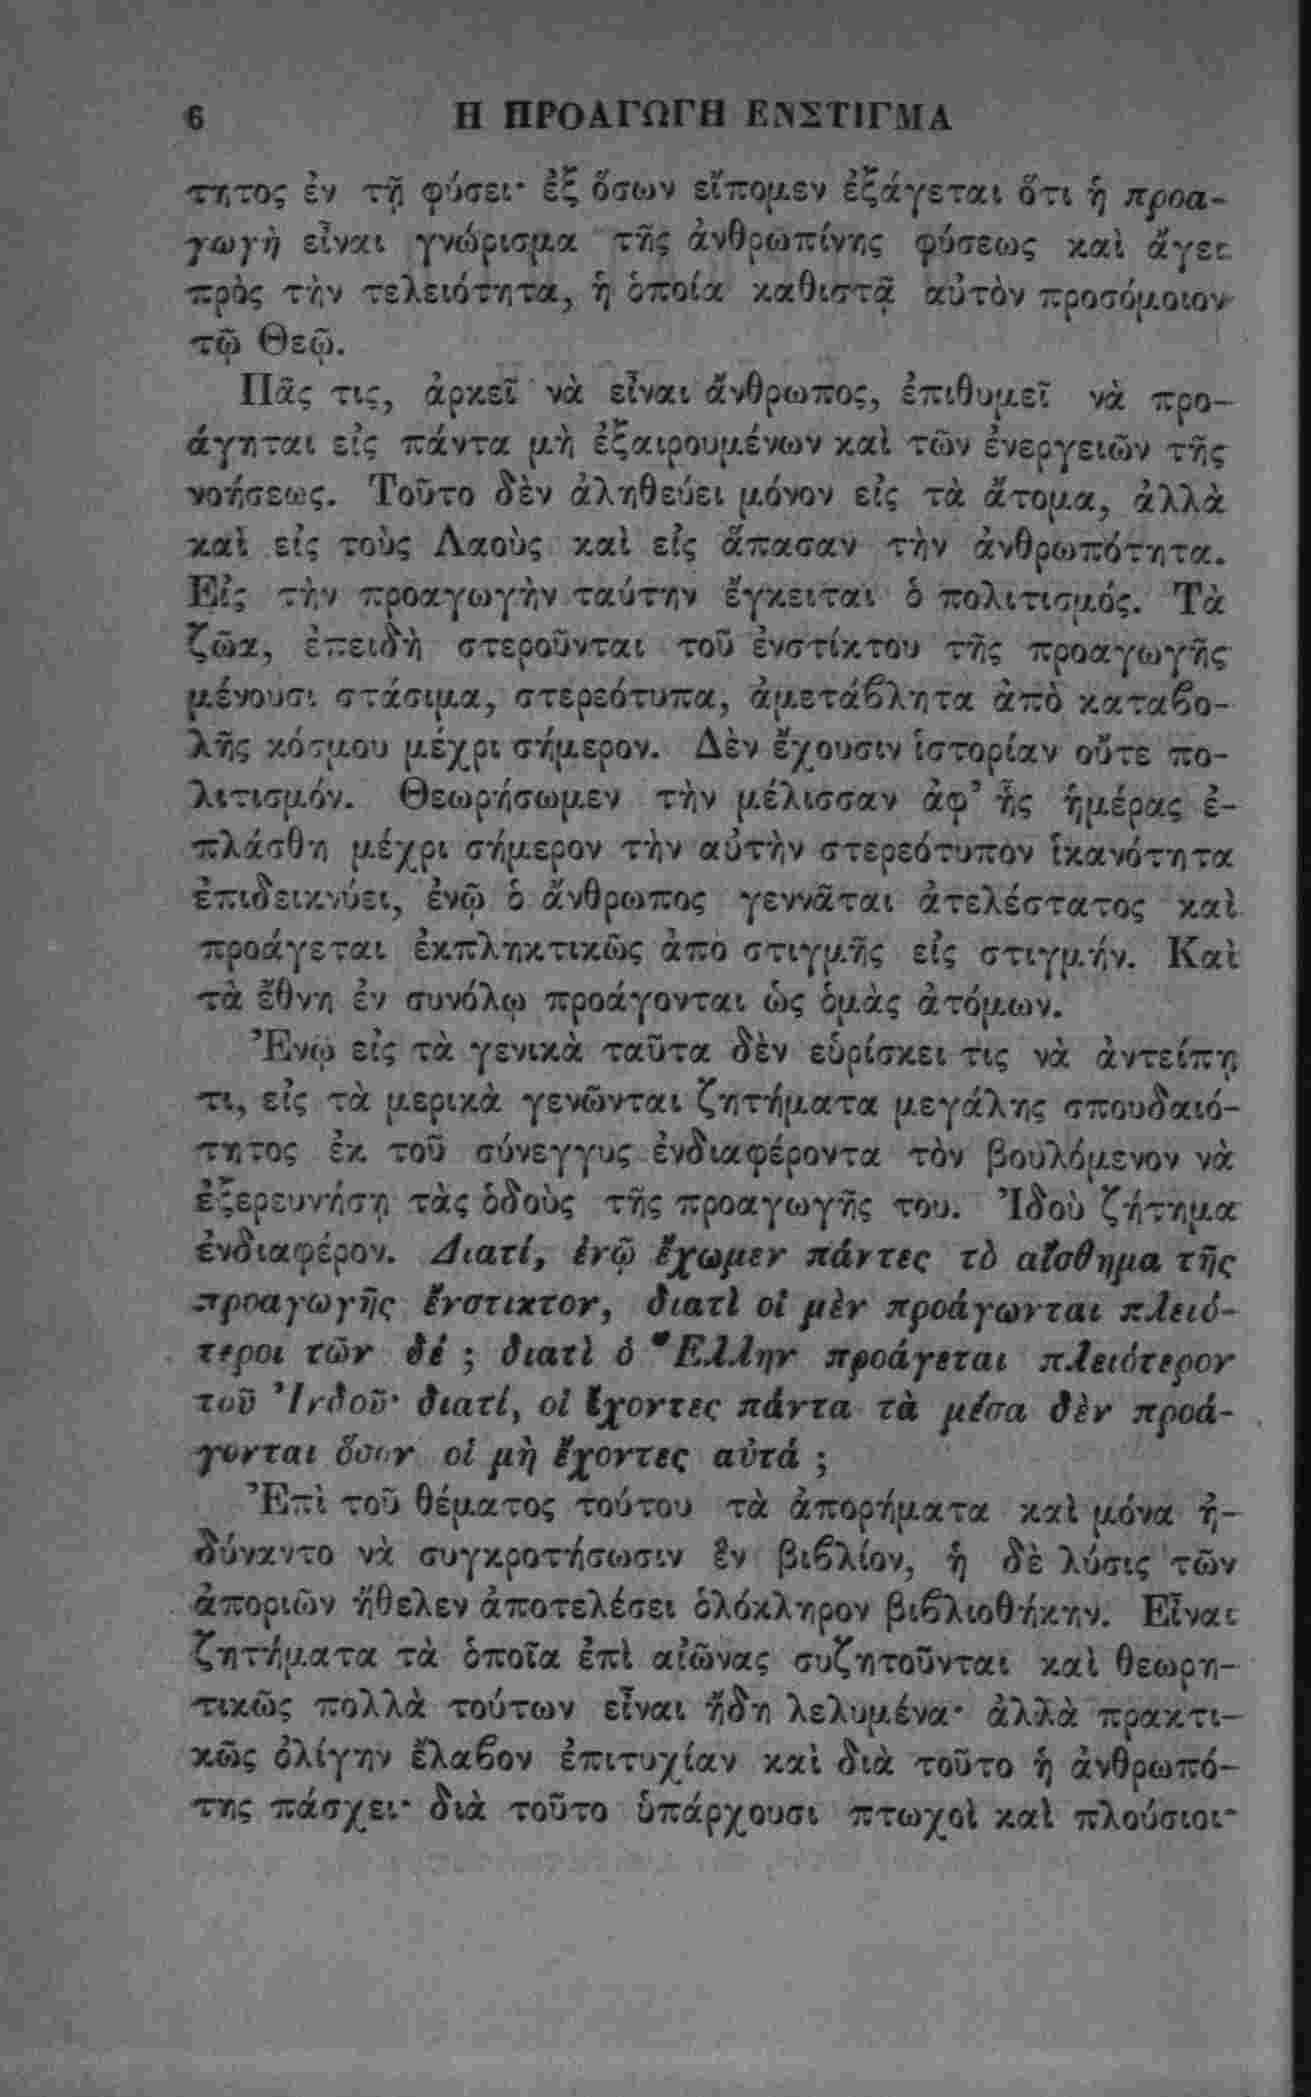 6 Η ΠΡΟΑΓΩΓΗ ΕΝΣΤΙΓΜΑ
τητος ἐν τῇ φύσει· ἐξ ὅσων εἴπομεν ἐξάγεται ὅτι ἡ προα-
γωγὴ εἶναι γνώρισμα τῆς ἀνθρωπίνης φύσεως καὶ ἄγει
πρὸς τὴν τελειότητα, ἡ ὁποία καθιστᾷ αὐτὸν προσόμοιον
τῷ Θεῷ.
Πᾶς τις, ἀρκεῖ νὰ εἶναι ἄνθρωπος, ἐπιθυμεῖ νὰ προ-
άγηται εἰς πάντα μὴ ἐξαιρουμένων καὶ τῶν ἐνεργειῶν τῆς
νοήσεως. Τοῦτο δὲν ἀληθεύει μόνον εἰς τὰ ἄτομα, ἀλλὰ
καὶ εἰς τοὺς Λαοὺς καὶ εἰς ἅπασαν τὴν ἀνθρωπότητα.
Εἰς τὴν προαγωγὴν ταύτην ἔγκειται ὁ πολιτισμός. Τὰ
ζῶα, ἐπειδὴ στεροῦνται τοῦ ἐνστίκτου τῆς προαγωγῆς
μένουσι στάσιμα, στερεότυπα, ἀμετάβλητα ἀπὸ καταβο-
λῆς κόσμου μέχρι σήμερον. Δὲν ἔχουσιν ἱστορίαν οὔτε πο-
λιτισμόν. Θεωρήσωμεν τὴν μέλισσαν ἀφ’ ἧς ἡμέρας ἐ-
πλάσθη μέχρι σήμερον τὴν αὐτὴν στερεότυπον ἱκανότητα
ἐπιδεικνύει, ἐνῷ ὁ ἄνθρωπος γεννᾶται ἀτελέστατος καὶ
προάγεται ἐκπληκτικῶς ἀπὸ στιγμῆς εἰς στιγμήν. Καὶ
τὰ ἔθνη ἐν συνόλῳ προάγονται ὡς ὁμὰς ἀτόμων.
Ἐνῷ εἰς τὰ γενικὰ ταῦτα δὲν εὑρίσκει τις νὰ ἀντείπῃ
τι, εἰς τὰ μερικὰ γενῶνται ζητήματα μεγάλης σπουδαιό-
τητος ἐκ τοῦ σύνεγγυς ἐνδιαφέροντα τὸν βουλόμενον νὰ
ἐξερευνήσῃ τὰς ὁδοὺς τῆς προαγωγῆς του. Ἰδοὺ ζήτημα
ἐνδιαφέρον. Διατί, ἐνῷ ἔχωμεν πάντες τὸ αἴσθημα τῆς
προαγωγῆς ἔνστικτον, διατὶ οἱ μὲν προάγωνται πλειό-
τεροι τῶν δέ ; διατὶ ὁ Ἕλλην προάγεται πλειότερον
τοῦ Ἰνδοῦ· διατί, οἱ ἔχοντες πάντα τὰ μέσα δὲν προά-
γονται ὅσον οἱ μὴ ἔχοντες αὐτά ;
Ἐπὶ τοῦ θέματος τούτου τὰ ἀπορήματα καὶ μόνα ἠ-
δύναντο νὰ συγκροτήσωσιν ἓν βιβλίον, ἡ δὲ λύσις τῶν
ἀποριῶν ἤθελεν ἀποτελέσει ὁλόκληρον βιβλιοθήκην. Εἶναι
ζητήματα τὰ ὁποῖα ἐπὶ αἰῶνας συζητοῦνται καὶ θεωρη-
τικῶς πολλὰ τούτων εἶναι ἤδη λελυμένα· ἀλλὰ πρακτι-
κῶς ὀλίγην ἔλαβον ἐπιτυχίαν καὶ διὰ τοῦτο ἡ ἀνθρωπό-
της πάσχει· διὰ τοῦτο ὑπάρχουσι πτωχοὶ καὶ πλούσιοι·